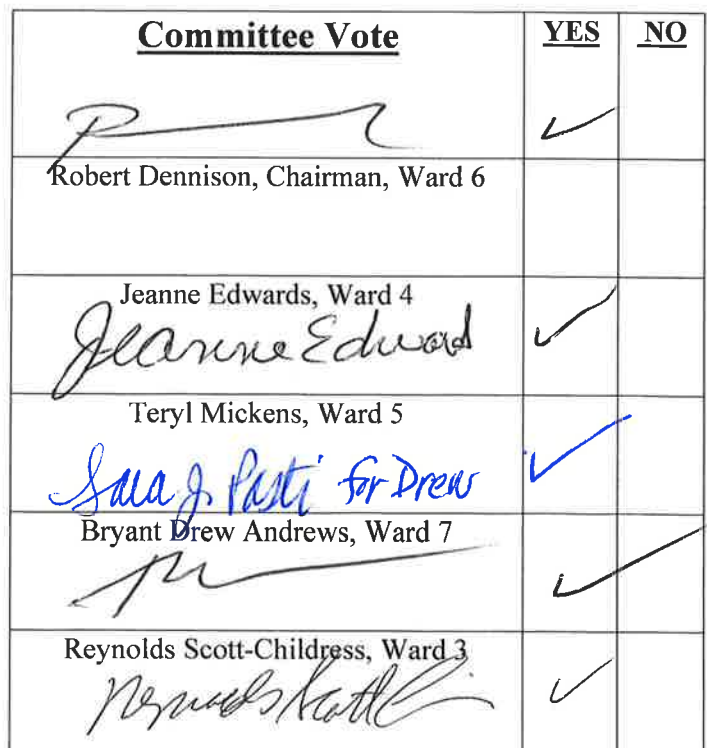 Committee Vote YES NO
✓
Robert Dennison, Chairman, Ward 6
Jeanne Edwards, Ward 4
Jeanne Edwards ✓
Teryl Mickens, Ward 5
Sara J. Pasti for Drew ✓
Bryant Drew Andrews, Ward 7
✓
Reynolds Scott-Childress, Ward 3
Reynolds Scott ✓